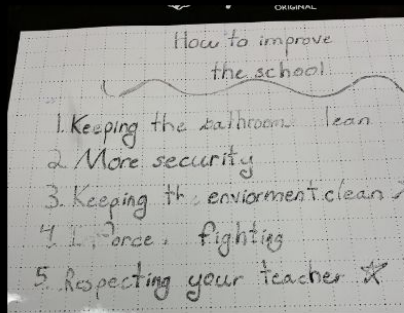 ORIGINAL
How to improve
the school
1. Keeping the bathroom lean
2 More security
3. Keeping th enviorment clean
4. force fighting
5. Respecting your teacher ☆